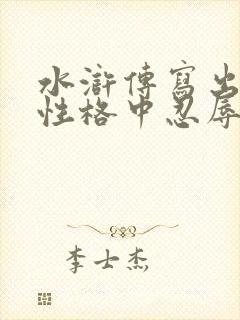 水滸傳寫出
性格中忍辱
李士杰